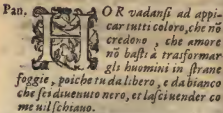 Pan. HOR vadansi ad appi-
car tutti coloro, che nõ
credono, che amore
nõ basti à trasformar
gli huomini in strane
foggie, poiche tu da libero, e da bianco
che sei diuenuto nero, et lasci uender co
me uil schiauo.